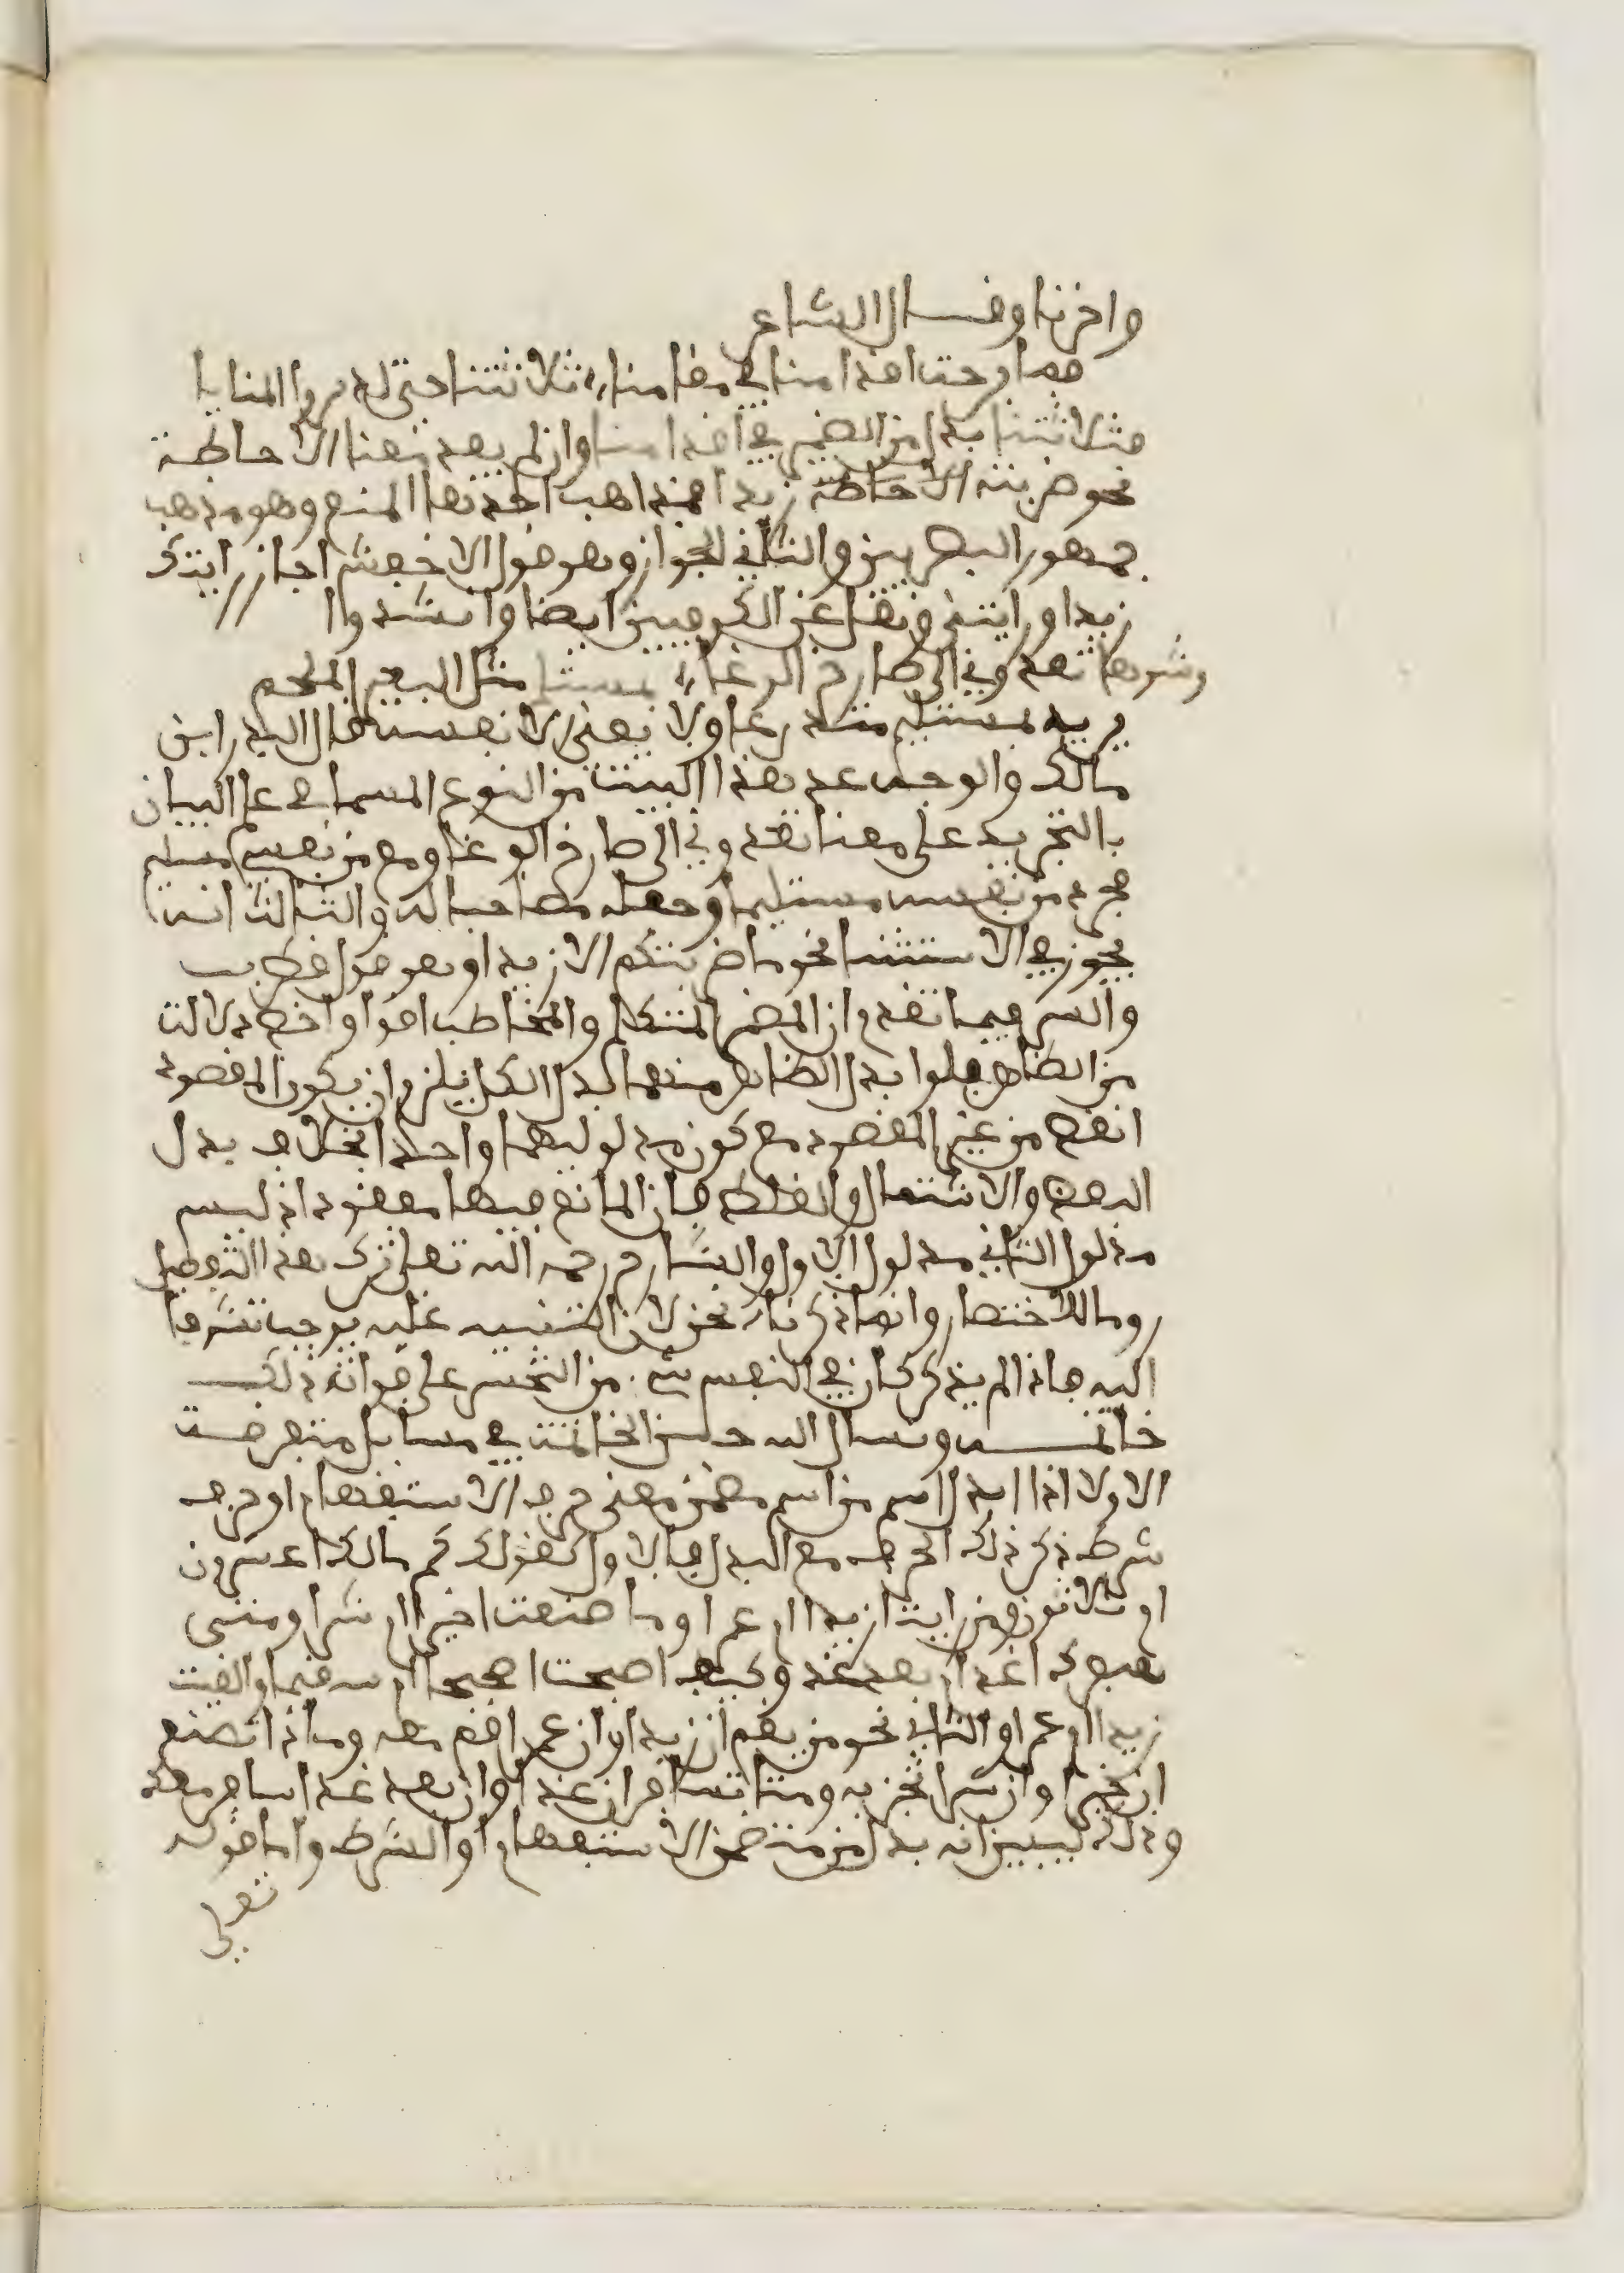 واخرنا وقال الشاعر
فما برحت اقدامنا في مقامنا ثلاثتنا حتى ازيروا المنايا
فثلاثتنا بدل من الضمير في اقدامنا وان لم يفد معنا الاحاطة
نحو ضربته الاحاطة زيدا فمذاهب احدها المنع وهو مذهب
جمهور البصريين والثاني الجواز وهو قول الاخفش اجاز رايتك
زيدا ورايتني ونقل عن الكوفيين ايضا وانشدوا
وشوهاء تعدوني الى صارخ الوغا بمستلئم مثل البعير المدجم
يريد بمستلئم متدرعا ولا يعني الا نفسه قال البدر ابن
مالك والوجه عد هذا البيت من النوع المسما في علم البيان
بالتجريد على معنا تعدوني الى صارخ الوغا ومع من نفسي مستلئم
فجرد من نفسه مستلئما وجعله مصاحبا له والثالث انه
يجوز في الاستثنا نحو ما ضربتكم الا زيدا وهو قول قطرب
والسر فيما تقدم ان المضمر المتكلم والمخاطب اقوا واخص دلالة
من الظاهر فلو ابدل الظاهر منهما بدل الكل يلزم ان يكون المقصود
انقص من غير المقصود مع كون مدلوليهما واحدا بخلاف بدل
البعض والاشتمال والغلط فان المانع فيها مفقود اذ ليس
مدلول الثاني مدلول الاول والشارح رحمه الله تعلى ترك هذا التفصيل
روما للاختصار وانما ذكرناه نحن لان التنبيه عليه يوجب تشوقا
اليه فاذا لم يذكر كان في النفس شيء من التحسر على فواته ذلك
خاتمة ونسال الله حسن الخاتمة في مسايل متفرقة
الاولا اذا ابدل اسم من اسم مضمن معنى حرف الاستفهام او حرف
شرط ذكر ذلك الحرف مع البدل فالاول كقولك كم مالك اعشرون
ام ثلاثون ومن رايت ازيدا ام عمرا وما صنعت اخيرا ام شرا ومتى
سفرك اغدا ام بعد غد وكيف اصبحت اصحيحا ام سقيما والقيت
زيدا ام عمرا والثاني نحو من يقم ان زيد او ان عمرو اقم معه وماذا تصنع
ان خيرا وان شرا تجز به ومتا تسافر ان غدا وان بعد غد اسافر معك
وذلك ليبين انه بدل من متضمن الاستفهام او الشرط واما قوله
تعلى